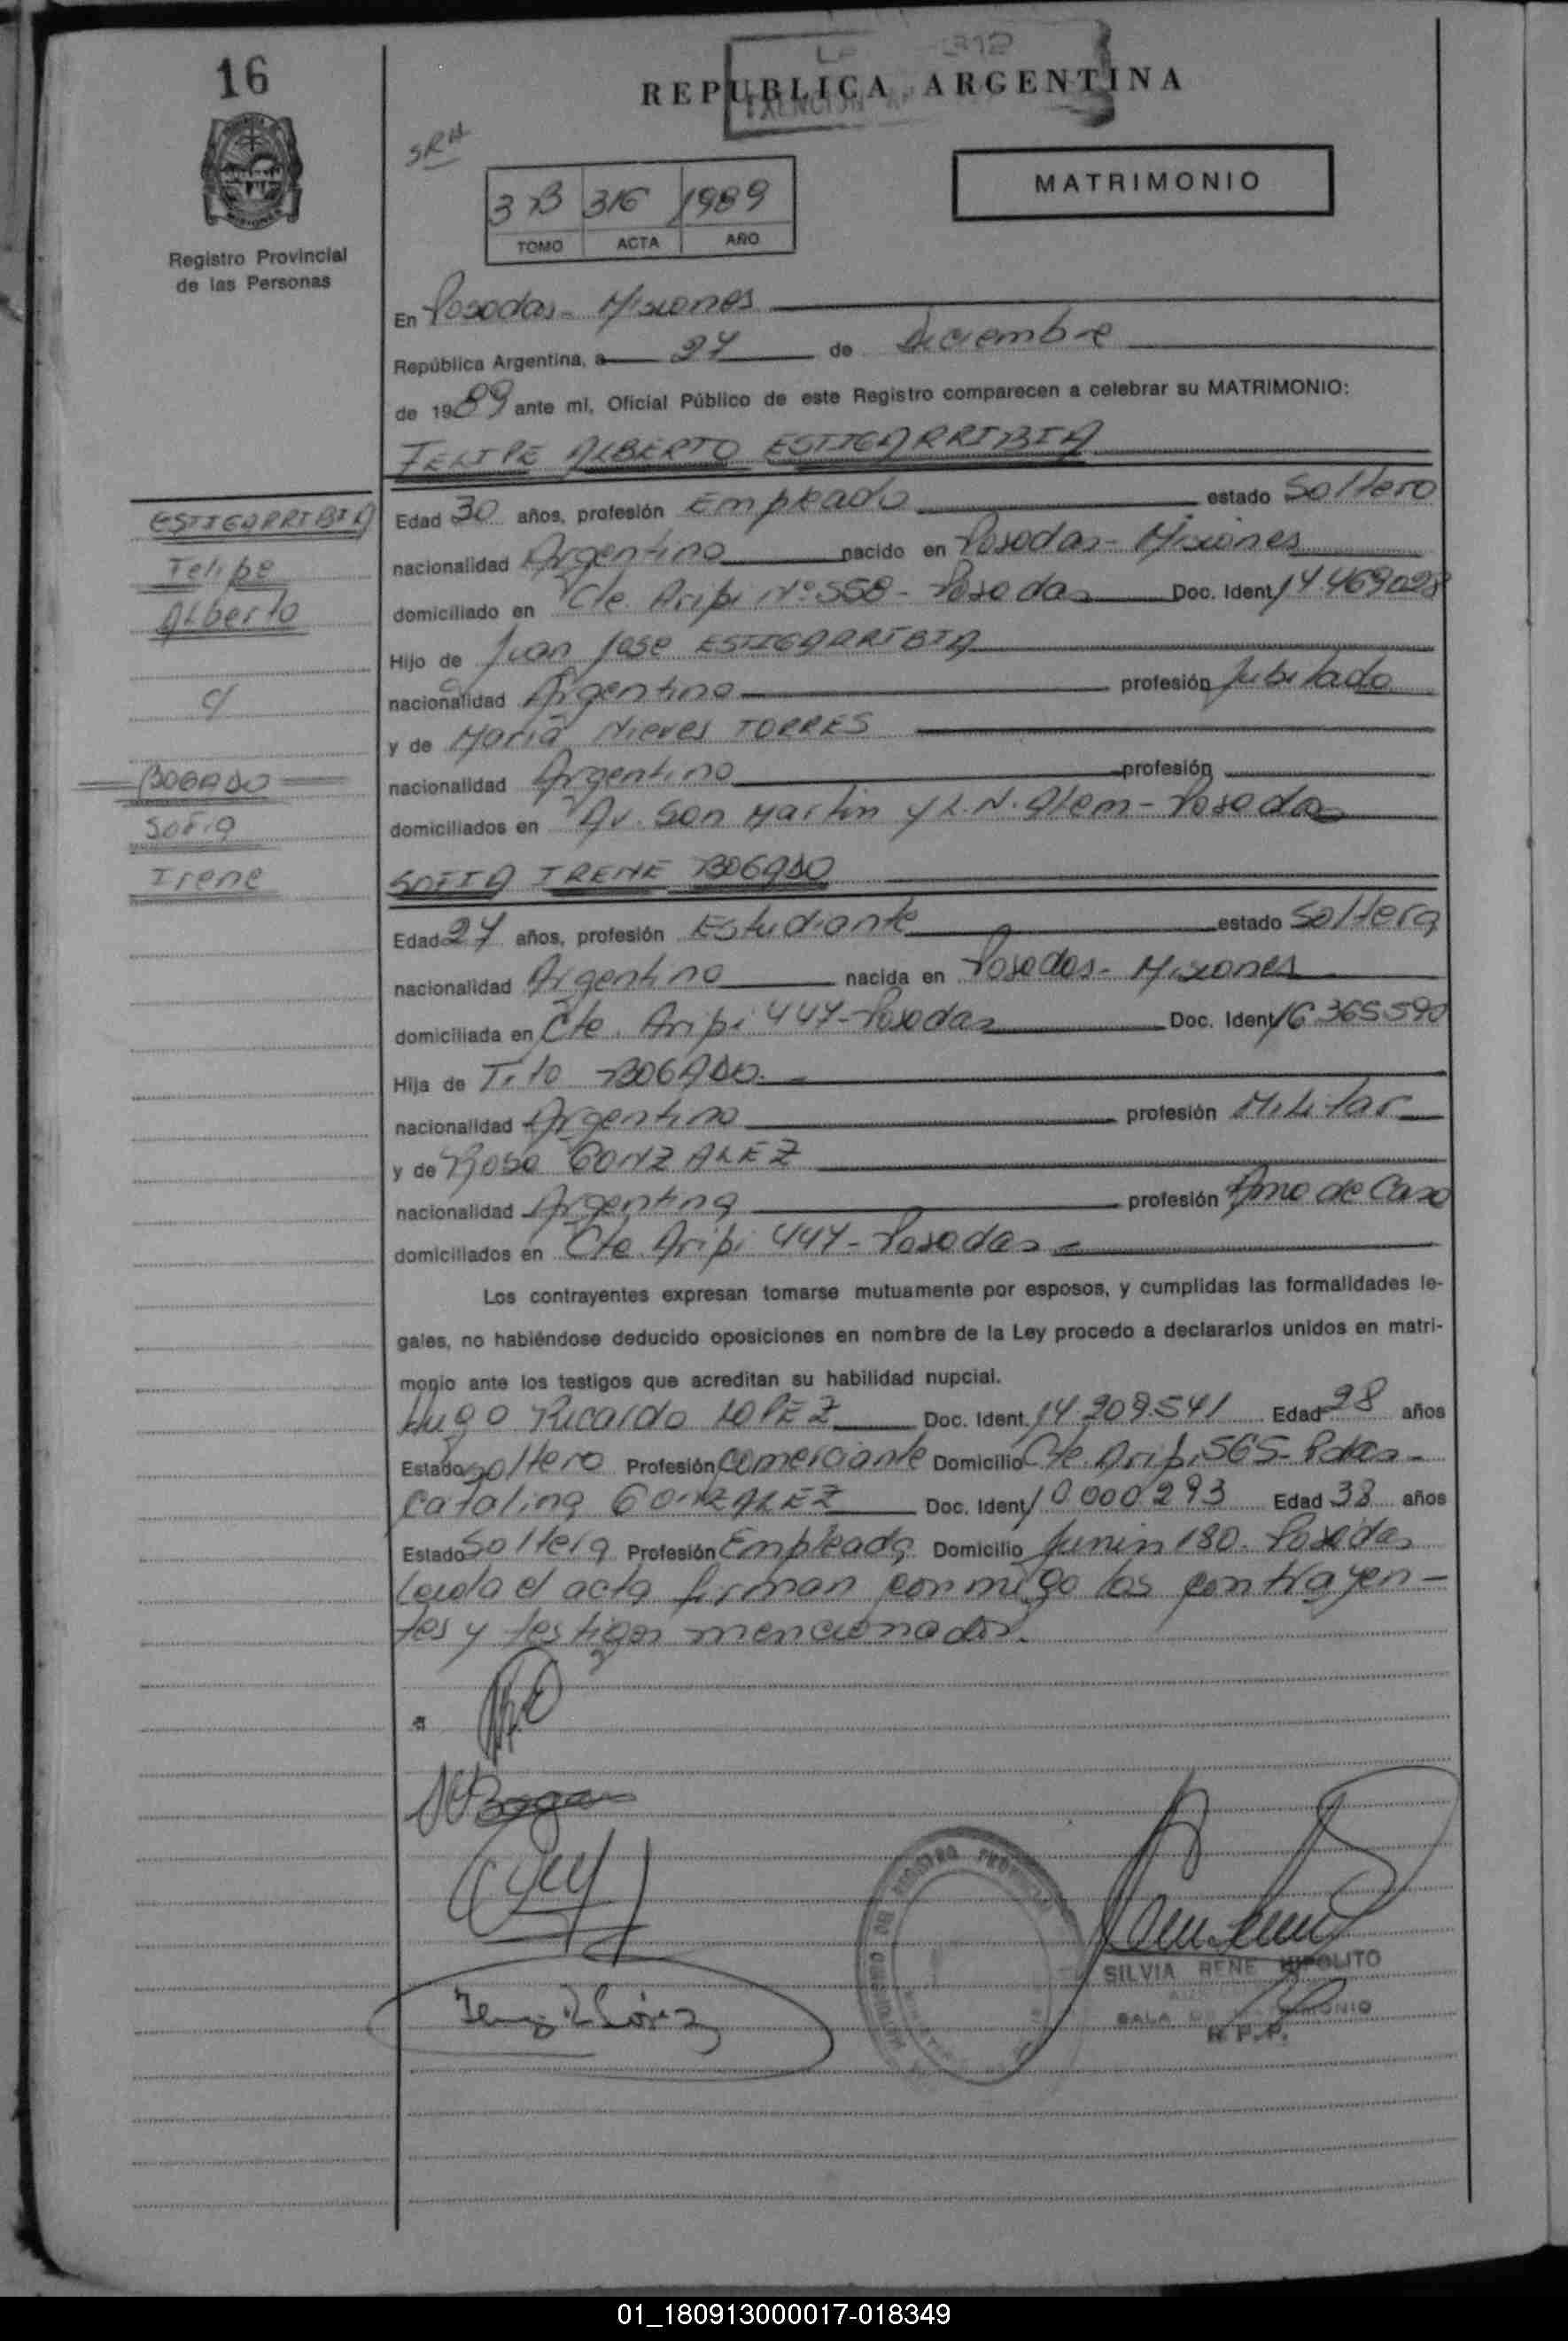 16
REPUBLICA ARGENTINA
SRH
MATRIMONIO
3 B 316 1989
TOMO ACTA AÑO
Registro Provincial
de las Personas
En Posadas - Misiones
República Argentina, a 27 de Diciembre
de 1989 ante mi, Oficial Público de este Registro comparecen a celebrar su MATRIMONIO:
FELIPE ALBERTO ESTIGARRIBIA
ESTIGARRIBIA
Felipe
Alberto
c/
BOGADO
Sofia
Irene
Edad 30 años, profesión Empleado estado Soltero
nacionalidad Argentina nacido en Posadas - Misiones
domiciliado en Cte. Aripi Nº 558 - Posadas Doc. Ident. 14.469028
Hijo de Juan Jose ESTIGARRIBIA
nacionalidad Argentina profesión Jubilado
y de Maria Nieves TORRES
nacionalidad Argentina profesión
domiciliados en Av. San Martin y L. N. Alem - Posadas
SOFIA IRENE BOGADO
Edad 27 años, profesión Estudiante estado Soltera
nacionalidad Argentina nacida en Posadas - Misiones
domiciliada en Cte. Aripi 447 - Posadas Doc. Ident. 16.365590
Hija de Tito BOGADO. -
nacionalidad Argentina profesión Militar
y de Rosa GONZALEZ
nacionalidad Argentina profesión Ama de Casa
domiciliados en Cte. Aripi 447 - Posadas -
Los contrayentes expresan tomarse mutuamente por esposos, y cumplidas las formalidades le-
gales, no habiéndose deducido oposiciones en nombre de la Ley procedo a declararlos unidos en matri-
monio ante los testigos que acreditan su habilidad nupcial.
Hugo Ricardo LOPEZ Doc. Ident. 14.209.541 Edad 28 años
Estado Soltero Profesión Comerciante Domicilio Cte. Aripi 565 - Pdas -
Catalina GONZALEZ Doc. Ident. 10000293 Edad 38 años
Estado Soltera Profesión Empleada Domicilio Junin 180. Posadas
Leida el acta firman conmigo los contrayen-
tes y testigos mencionados.
SILVIA RENE HIPOLITO
R. P. P.
01_180913000017-018349